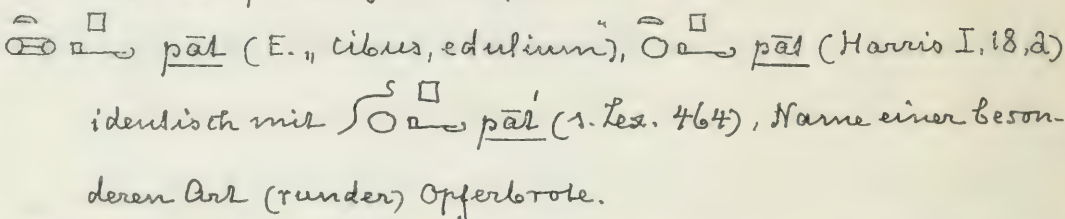 pāt (E. „cibus, edulium“), pāt (Harris I, 18, a)
identisch mit pāt (s. Lex. 464), Name einer beson-
deren Art (runder) Opferbrote.